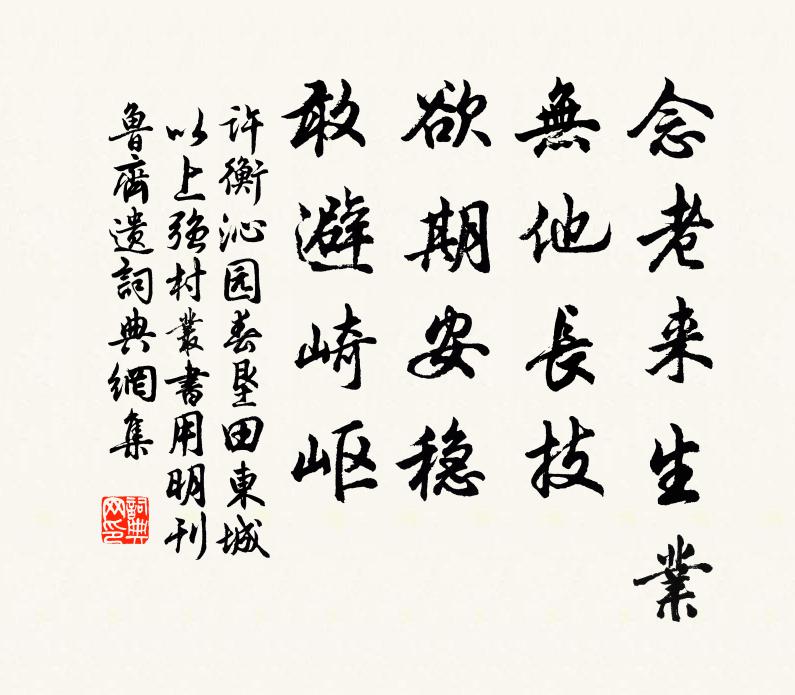 念老来生業
無他長技
欲期安穏
敢避崎岖
许衡沁园春垦田東城
以上强村叢書用明刊
魯齋遗詞典網集
詞典网印